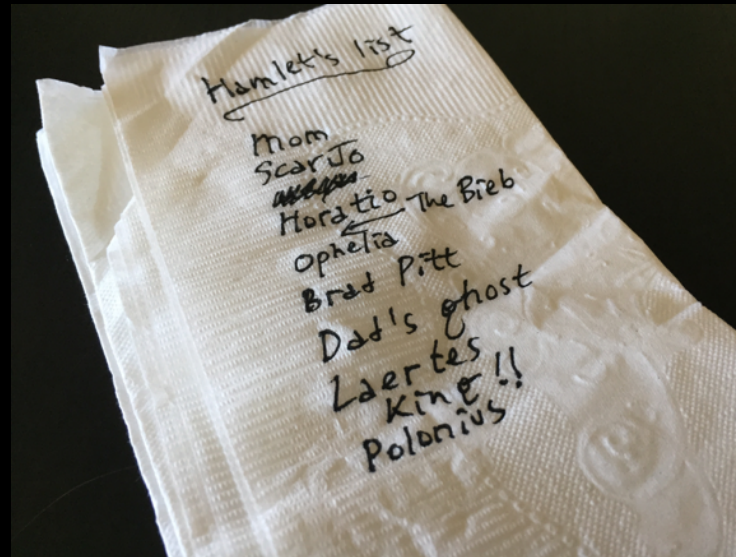 Hamlet's list
Mom
ScarJo
Horatio
The Bieb
Ophelia
Brad Pitt
Dad's ghost
Laertes
King!!
Polonius